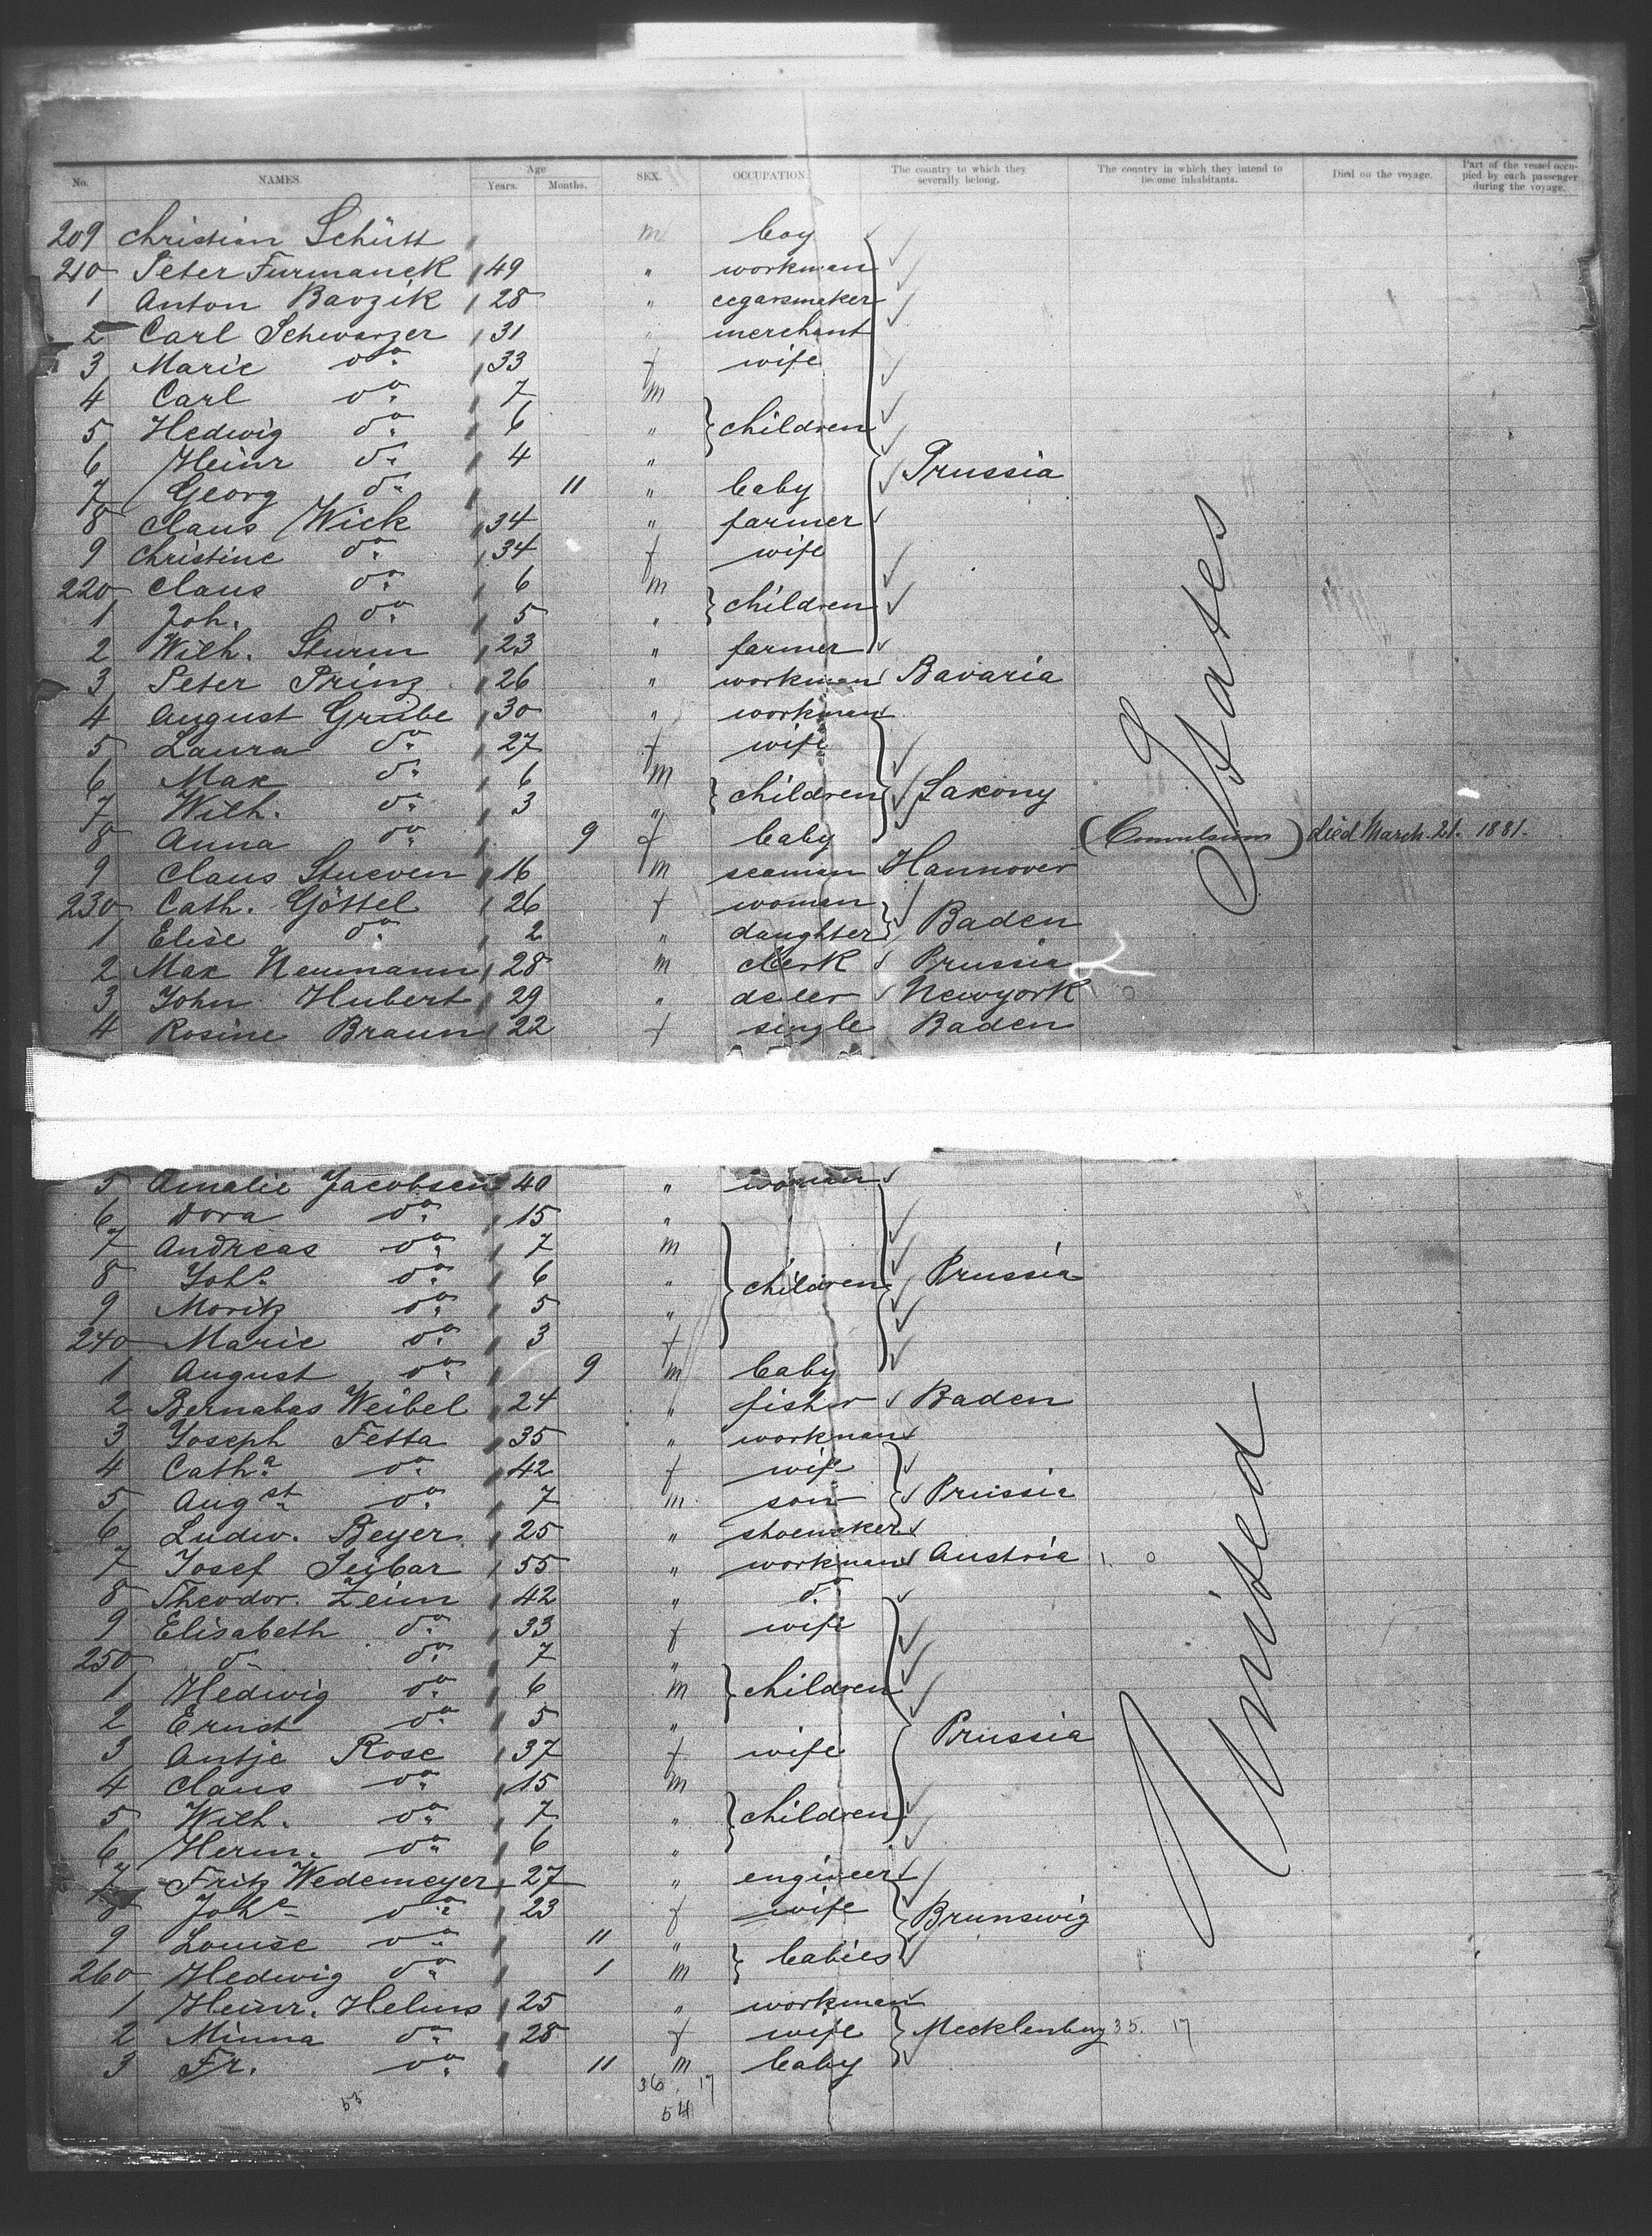 No. NAMES. Age Years. Months. SEX. OCCUPATION The country to which they severally belong. The country in which they intend to become inhabitants. Died on the voyage. Part of the vessel occupied by each passenger during the voyage.
209 Christian Schütt m boy
210 Peter Furmanek 49 " workman
1 Anton Bavzik 28 " cegarsmaker
2 Carl Schwarzer 31 " merchant
3 Marie do 33 f wife
4 Carl do 7 m
5 Hedwig do 6 " children
6 Heinr do 4 " Prussia
7 Georg do 11 " baby
8 Claus Wick 34 " farmer
9 Christine do 34 f wife
220 Claus do 6 m
1 Joh. do 5 " children
2 Wilh. Sturm 23 " farmer
3 Peter Prinz 26 " workman Bavaria
4 August Grube 30 " workman
5 Laura do 27 f wife
6 Max do 6 m
7 Wilh. do 3 " children Saxony
8 Anna do 9 f baby (Convulsions) died March 21. 1881.
9 Claus Stueven 16 m seaman Hannover
230 Cath. Göttel 26 f woman
1 Elise do 2 " daughter Baden
2 Max Neumann 28 m clerk Prussia
3 John Hubert 29 " deler Newyork
4 Rosine Braun 22 f single Baden
5 Amalie Jacobsen 40 " woman
6 Dora do 15 "
7 Andreas do 7 m
8 Johs do 6 " children Prussia
9 Moritz do 5 "
240 Marie do 3 f
1 August do 9 m baby
2 Bernabas Weibel 24 " fisher Baden
3 Joseph Fetta 35 " workman
4 Catha do 42 f wife
5 Augst do 7 m son Prussia
6 Ludw. Beyer 25 " shoemaker
7 Josef Seibar 55 " workman Austria 1. 0
8 Theodor. Zeim 42 " do
9 Elisabeth do 33 f wife
250 do do 7 "
1 Hedwig do 6 m children
2 Ernst do 5 "
3 Antje Rose 37 f wife Prussia
4 Claus do 15 m
5 Wilh. do 7 " children
6 Herm. do 6 "
7 Fritz Wedemeyer 27 " engineer
8 Johe do 23 f wife
9 Louise do 11 " Brunswig
260 Hedwig do 1 m babies
1 Heinr. Helms 25 " workman
2 Minna do 28 f wife Mecklenburg 35. 17
3 Fr. do 11 m baby
36. 17
53 54
United States